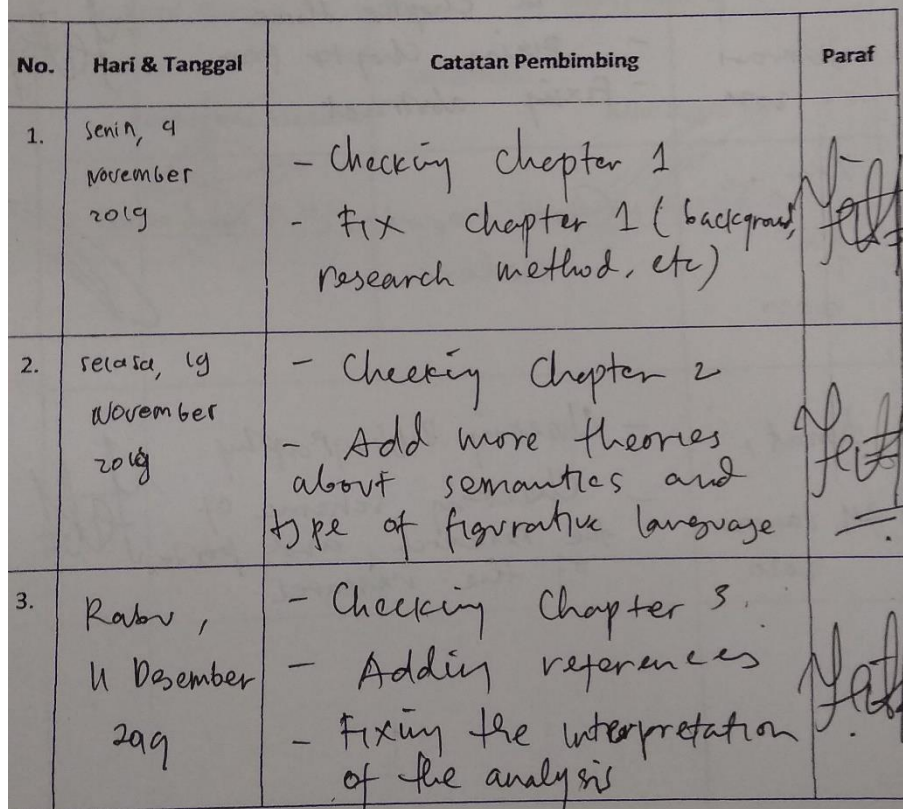 No. Hari & Tanggal Catatan Pembimbing Paraf
1. Senin, 4
November
2019
- Checking chapter 1
- Fix chapter 1 (background,
research method, etc)
2. Selasa, 19
November
2019
- Checking Chapter 2
- Add more theories
about semantics and
type of figurative language
3. Rabu,
11 Desember
2019
- Checking Chapter 3.
- Adding references
- Fixing the interpretation
of the analysis